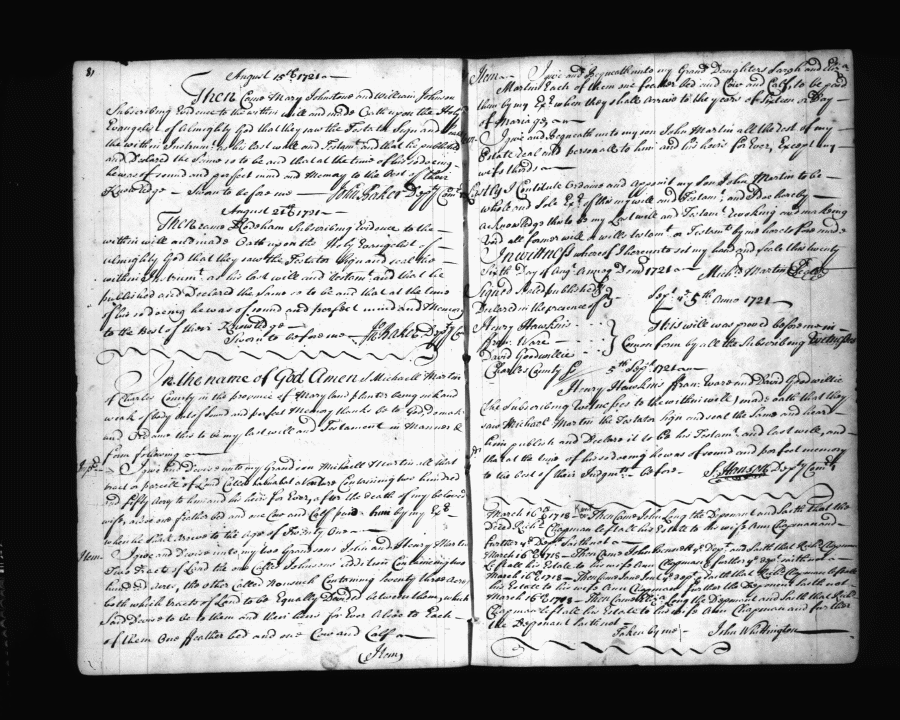 81
August 15th 1721
Then Came Mary Johnstone and William Johnson
Subscribing Evidence to the within will and made Oath upon the Holy
Evangelst of Almighty God that they saw the Testator Sign and seal
the within Instrumt. as his last will and Testamt. and that he published
and Declared the Same so to be and that at the time of his so doing
he was of sound and parfect mind and Memory to the best of their
Knowledge — Sworn to before me — John Baker Depty Comry
August 21th 1721
Then came Rodsham Subscribing Evidence to the
within will and made Oath upon the Holy Evangelist of
Almighty God that they saw the Testator Sign and seal the
within Instrumt. as his last will and Testamt. and that he
published and Declared the Same so to be and that at the time
of his so doing he was of sound and perfect mind and Memory
to the Best of their Knowledge
Sworn to before me — Jno Baker Depty C
In the name of God Amen I Michaell Martin
of Charles County in the province of Maryland planter being sick and
weak of body but of sound and perfect Memory thanks be to God, do make
and Ordaine this to be my last will and Testament in Manner &
form following
I give and Devise unto my Grandson Michaell Martin all that
tract or parcell of Land Called Containing two hundred
and fifty acres to him and his heirs for Ever, after the death of my beloved
wife, also one feather bed and one Cow and Calf paid him by my Exr.
when he shall arrive to the age of Twenty One
Item I give and Devise unto my two Grandsons John and Henry Martin
Two Tracts of Land the one Called Johnsons addition Containing two
hundred acres, the other Called Nonsuch Containing Twenty three acres
both which tracts of Land to be Equally Divided between them, which
Said Devise to be to them and their heirs for Ever Also to Each
of them One ffeather bed and one Cow and Calf
Item
Item I give and Bequeath unto my Grand Daughters Sarah and Eliza
Martin Each of them one feather bed and Cow and Calf, to be paid
them by my Exr. when they shall Arrive to the years of Sixteen or Day
of Marriage
I give and Bequeath unto my son John Martin all the rest of my
Estate real and personall to him and his heirs for Ever, Except my
wifes thirds
Lastly I Constitute Ordaine and Appoint my Son John Martin to be
whole and Sole Exr. of this my will and Testamt. and Doe hereby
acknowledge this to be my Last will and Testamt. revoking and making
Void all former will or wills testamt. or Testamts by me heretofore made
In witness whereof I hereunto set my hand and seale this twenty
Sixth Day of Augt. Anno Dom 1721 — Michd Martin Seal
Signed Seald published &
Declared in the presence of
Henry Hawkins
fran: Ware
David Goodwillie
Septr. ye 5th Anno 1721
This will was proved before me in
Common form by all the Subscribing Evidences
Charles County Ss 5th Sepr 1721
Henry Hawkins fran: Ware and David Goodwillie
the Subscribing Witnesses to the within will, made oath that they
saw Michael Martin the Testator sign and seal the Same and heard
him publish and Declare it to be his Testamt. and last will, and
that at the time of his so doing he was of sound and perfect memory
to the best of their Judgmts — before — S. Hanson Depty Comry
March 16th 1718 Then Came John Long the Deponent and Saith that the
Dec'd Richd. Chapman left all his Estate to his wife Ann Chapman and
further ye Depo. saith not
March 16th 1718 — Then Came ye Depo. and Saith that Richd Chapman
Left all his Estate to his wife Ann Chapman & further ye Depo. saith not
March 16th 1718 — Then Came ye Depo. & saith that Richd Chapman left all
his Estate to his wife Ann Chapman & further the Deponent Saith not
March 16th 1718 — Then Came Long the Deponent and Saith that Richd
Chapman left all his Estate to his wife Ann Chapman and further
the Deponent Saith not
Taken by me John Whittington